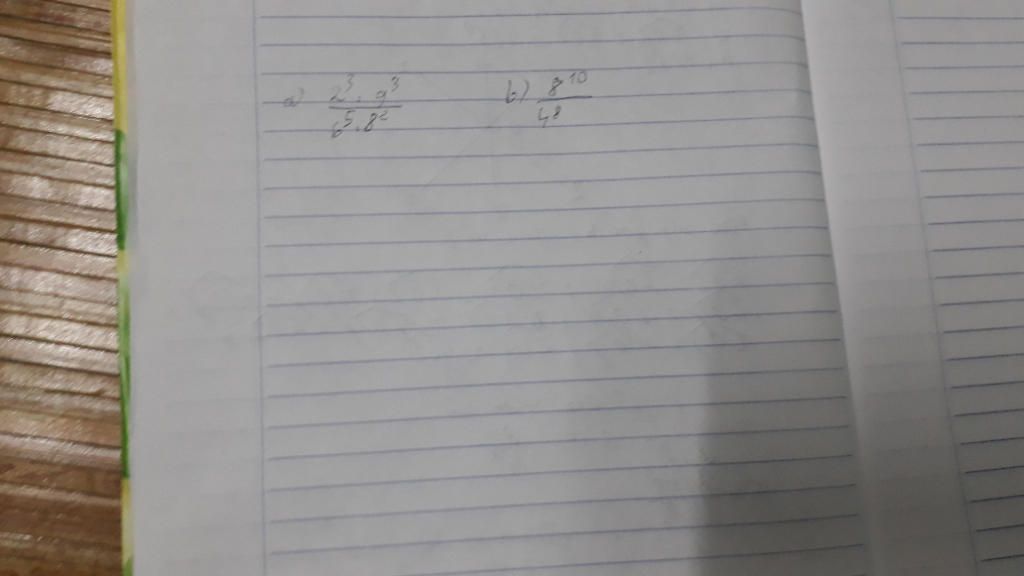 a) 2³ . 9³ / 6⁵ . 8² b) 8¹⁰ / 4⁸